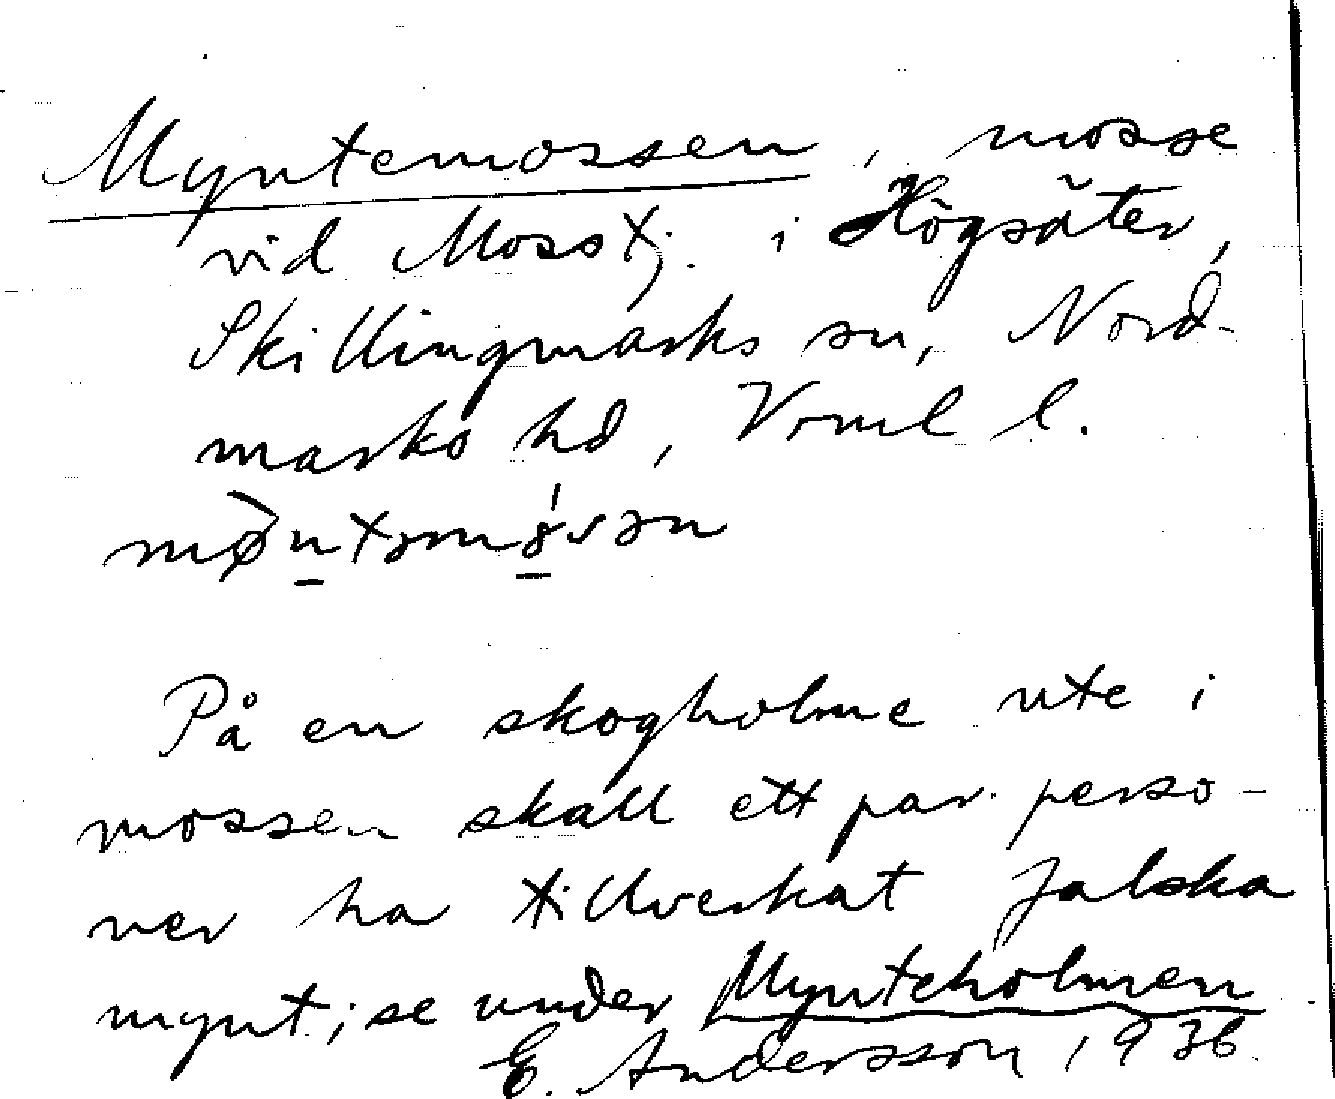 Myntemossen, mosse
vid Mosstj. i Högsäter,
Skillingmarks sn, Nord-
marks hd, Vrml l.
På en skogholme ute i
mossen skall ett par perso-
ner ha tillverkat falska
mynt; se under Mynteholmen
E. Andersson, 1936.